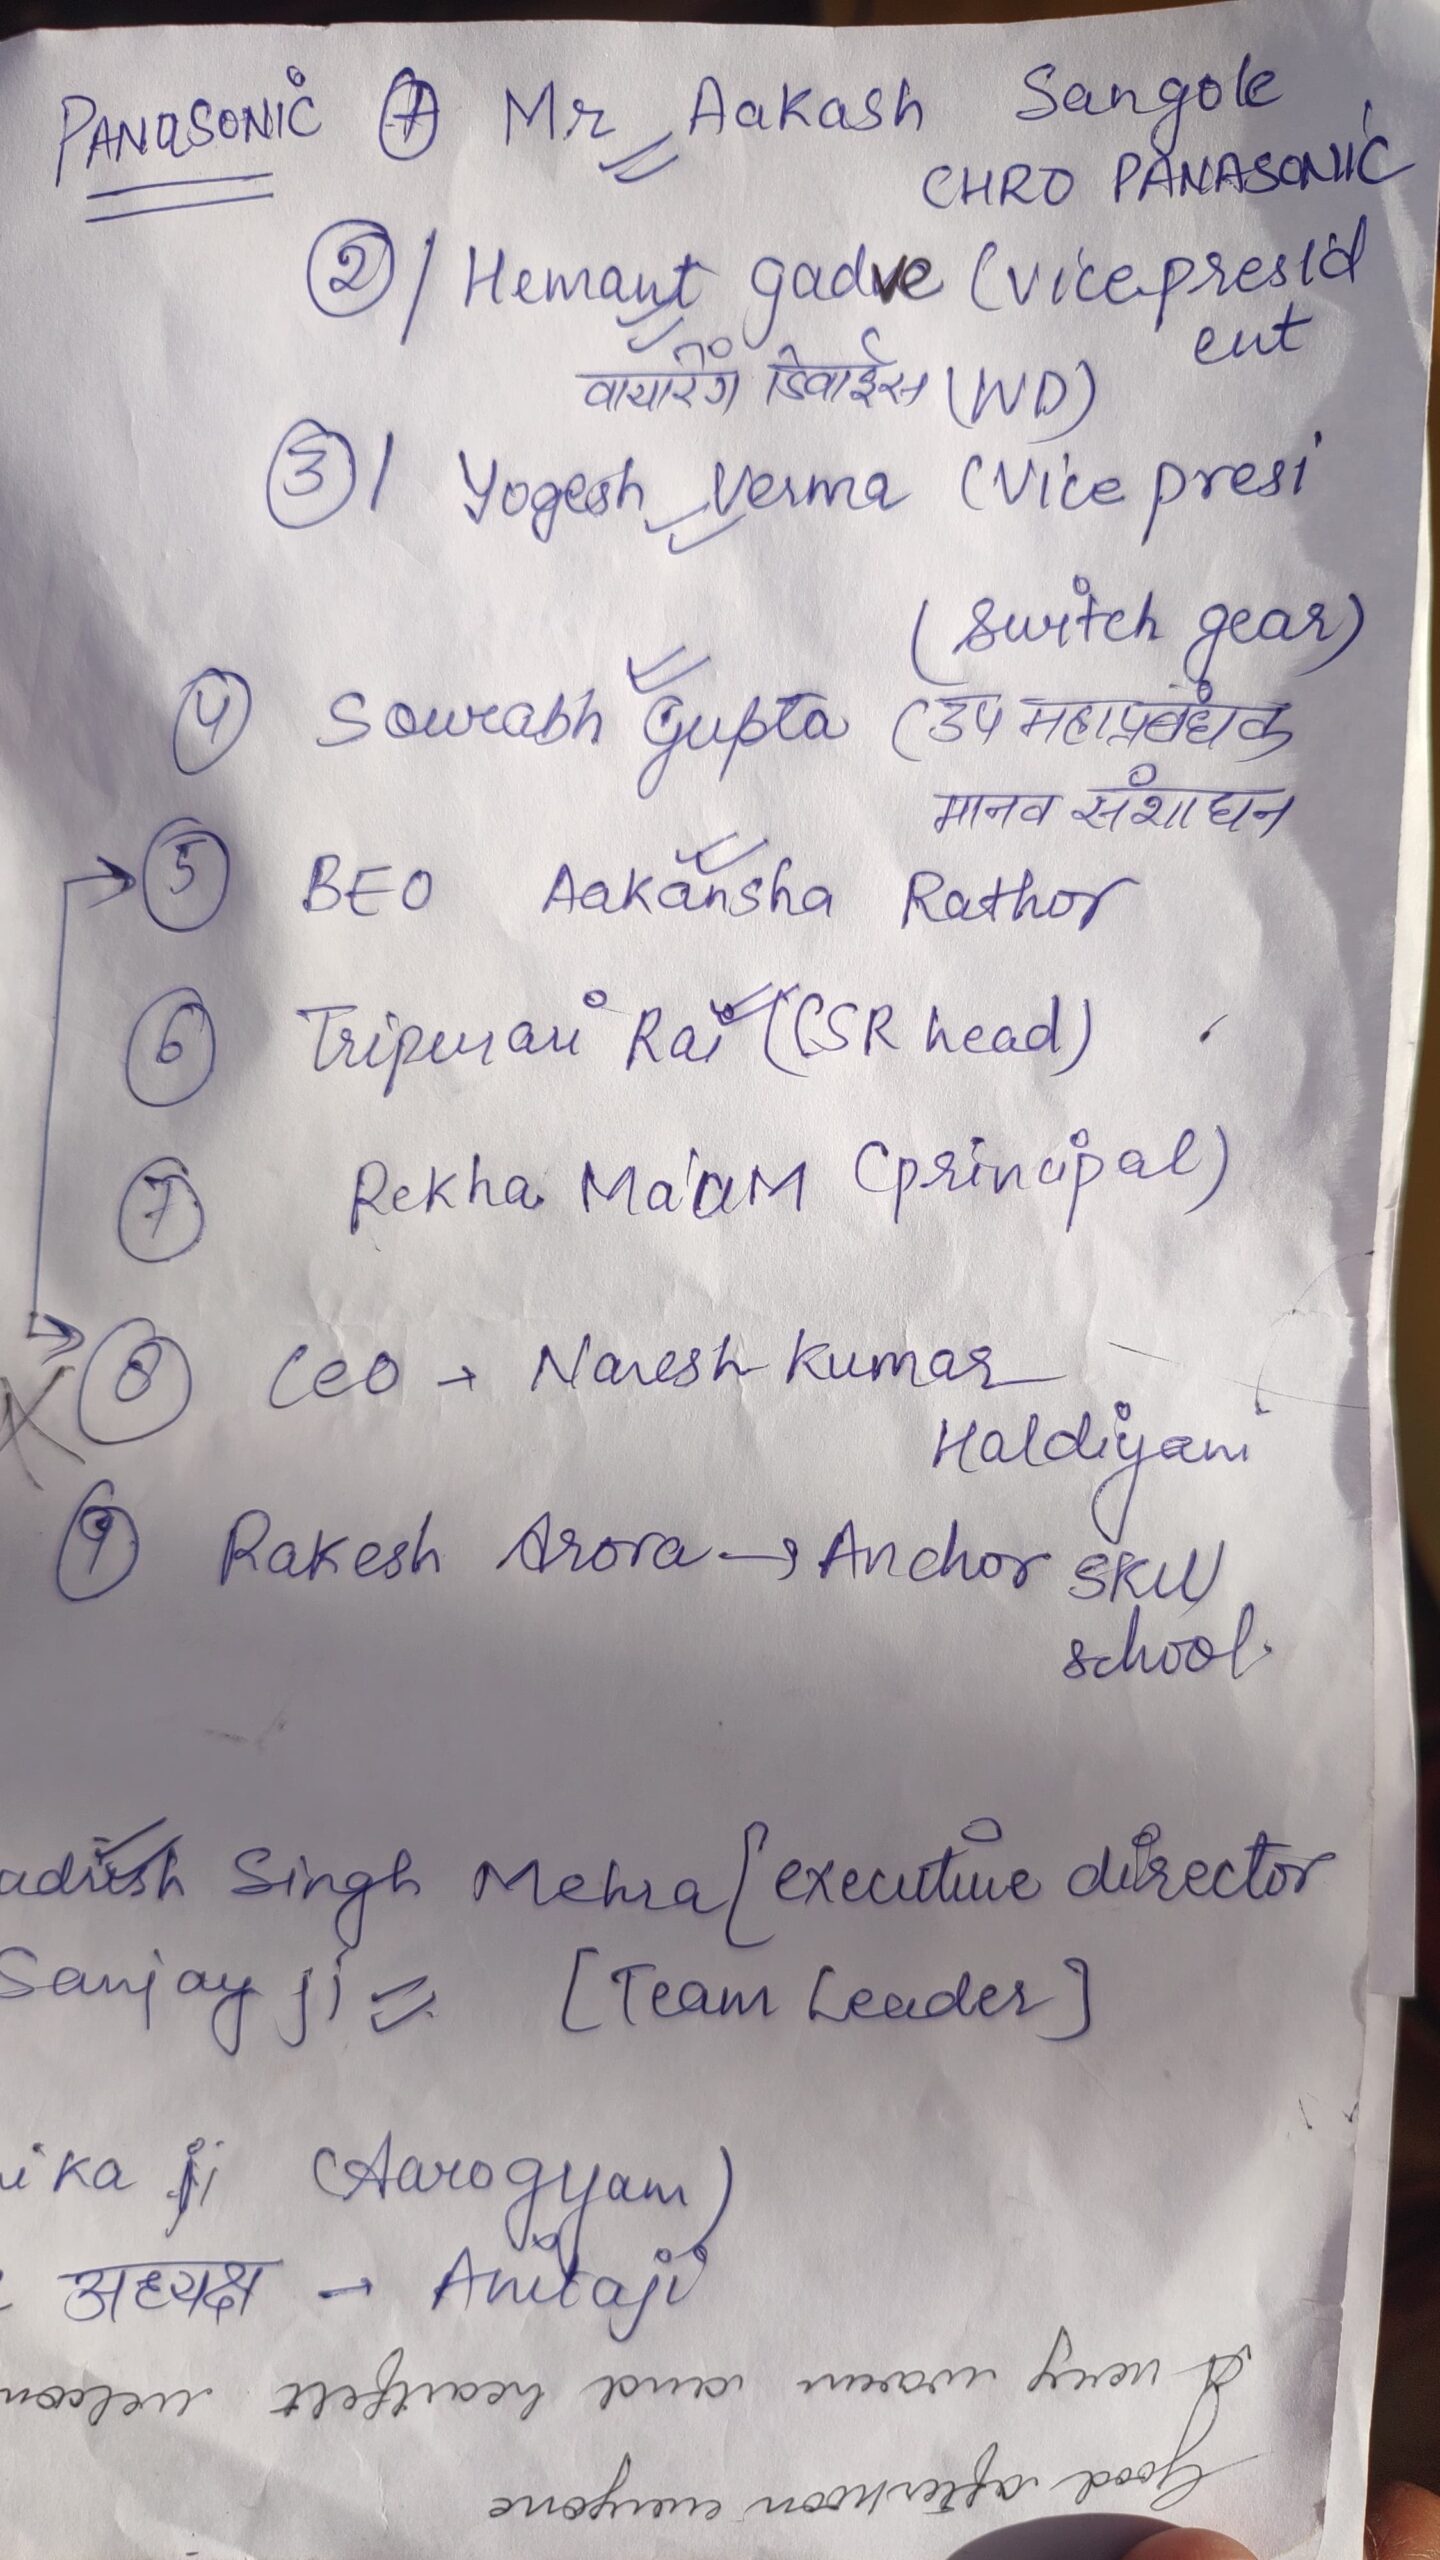 PANASONIC ① Mr Aakash Sangole
CHRO PANASONIC
② / Hemant gadve (vice presid
ent
वायरिंग डिवाईस (WD)
③ / Yogesh Verma (Vice presi
(switch gear)
④ Sourabh Gupta (उप महाप्रबंधक
मानव संशाधन
⑤ BEO Aakansha Rathor
⑥ Tripurari Rai (CSR head)
⑦ Rekha Ma'aM (principal)
⑧ CEO → Naresh Kumar
Haldiyani
⑨ Rakesh Arora → Anchor Skill
school.
Singh Mehra [executive director
Sanjay ji = [Team Leader]
ika ji (Aarogyam)
अध्यक्ष → Anitaji
Good afternoon everyone
A very warm and heartfelt welcom